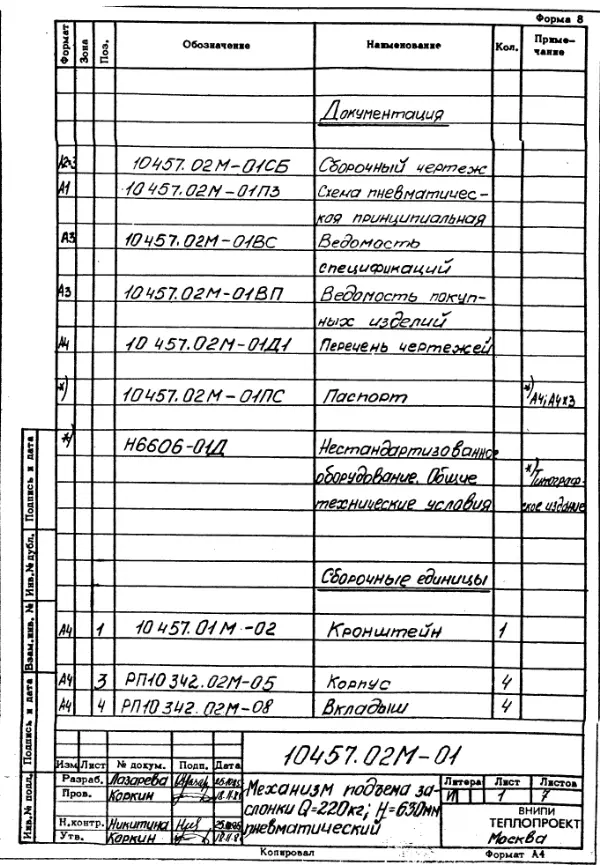 Форма 8
Формат Зона Поз. Обозначение Наименование Кол. Приме-
чание
Документация
А2×3 10457.02М-01СБ Сборочный чертеж
А1 10457.02М-01ПЗ Схема пневматичес-
кая принципиальная
А3 10457.02М-01ВС Ведомость
спецификаций
А3 10457.02М-01ВП Ведомость покуп-
ных изделий
А4 10457.02М-01Д1 Перечень чертежей
*) 10457.02М-01ПС Паспорт *) А4; А4×3
*) Н6606-01Д Нестандартизованное
оборудование. Общие *) Типограф-
технические условия ское издание
Сборочные единицы
А4 1 10457.01М-02 Кронштейн 1
А4 3 РП10342.02М-05 Корпус 4
А4 4 РП10342.02М-08 Вкладыш 4
Подпись и дата
Инв.№ дубл.
Взам.инв. №
Подпись и дата
Инв.№ подл.
10457.02М-01
Изм Лист № докум. Подп. Дата
Разраб. Лазарева
Пров. Коркин
Н.контр. Никитина
Утв. Коркин
Механизм подъема за-
слонки Q=220кг; H=630мм
пневматический
Литера Лист Листов
И 1 7
ВНИПИ
ТЕПЛОПРОЕКТ
Москва
Копировал Формат А4